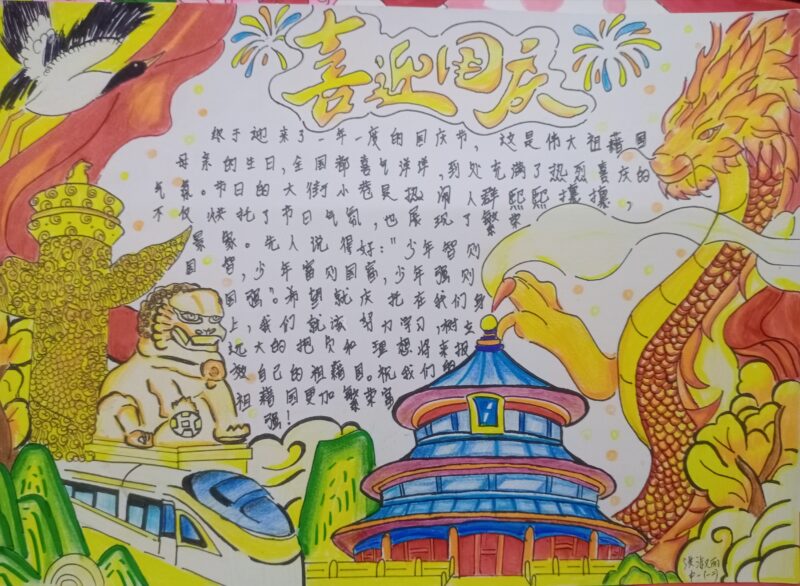 喜迎国庆
终于迎来了一年一度的国庆节，这是伟大祖籍国
母亲的生日，全国都喜气洋洋，到处充满了热烈喜庆的
气氛。节日的大街小巷是热闹人群熙熙攘攘，
不仅快托了节日气氛，也展现了繁荣
景象。先人说得好：“少年智则
国智，少年富则国富，少年强则
国强”。希望就庆托在我们身
上，我们就该努力学习，树立
远大的抱负和理想将来报
效自己的祖籍国。祝我们的
祖籍国更加繁荣富
强！